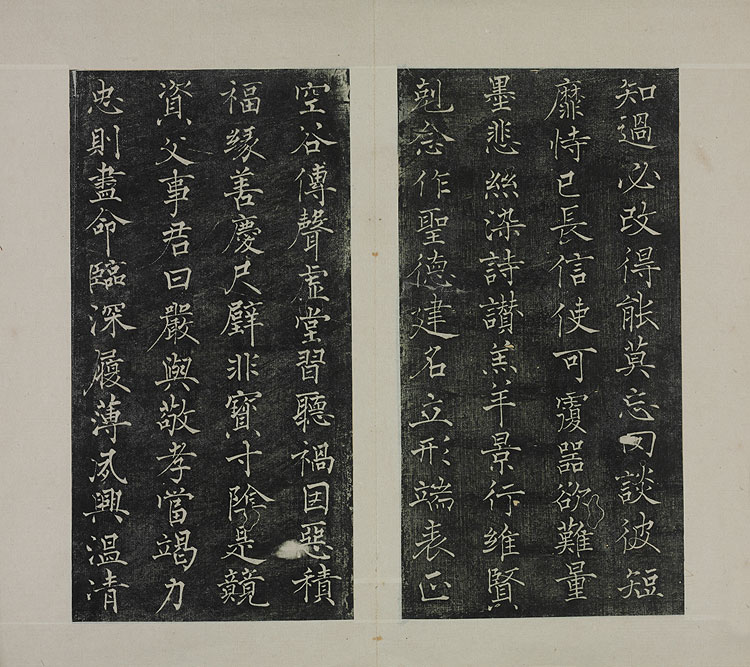 知過必改得能莫忘罔談彼短
靡恃己長信使可覆器欲難量
墨悲絲染詩讚羔羊景行維賢
剋念作聖德建名立形端表正
空谷傳聲虛堂習聽禍因惡積
福緣善慶尺璧非寶寸陰是競
資父事君曰嚴與敬孝當竭力
忠則盡命臨深履薄夙興溫凊